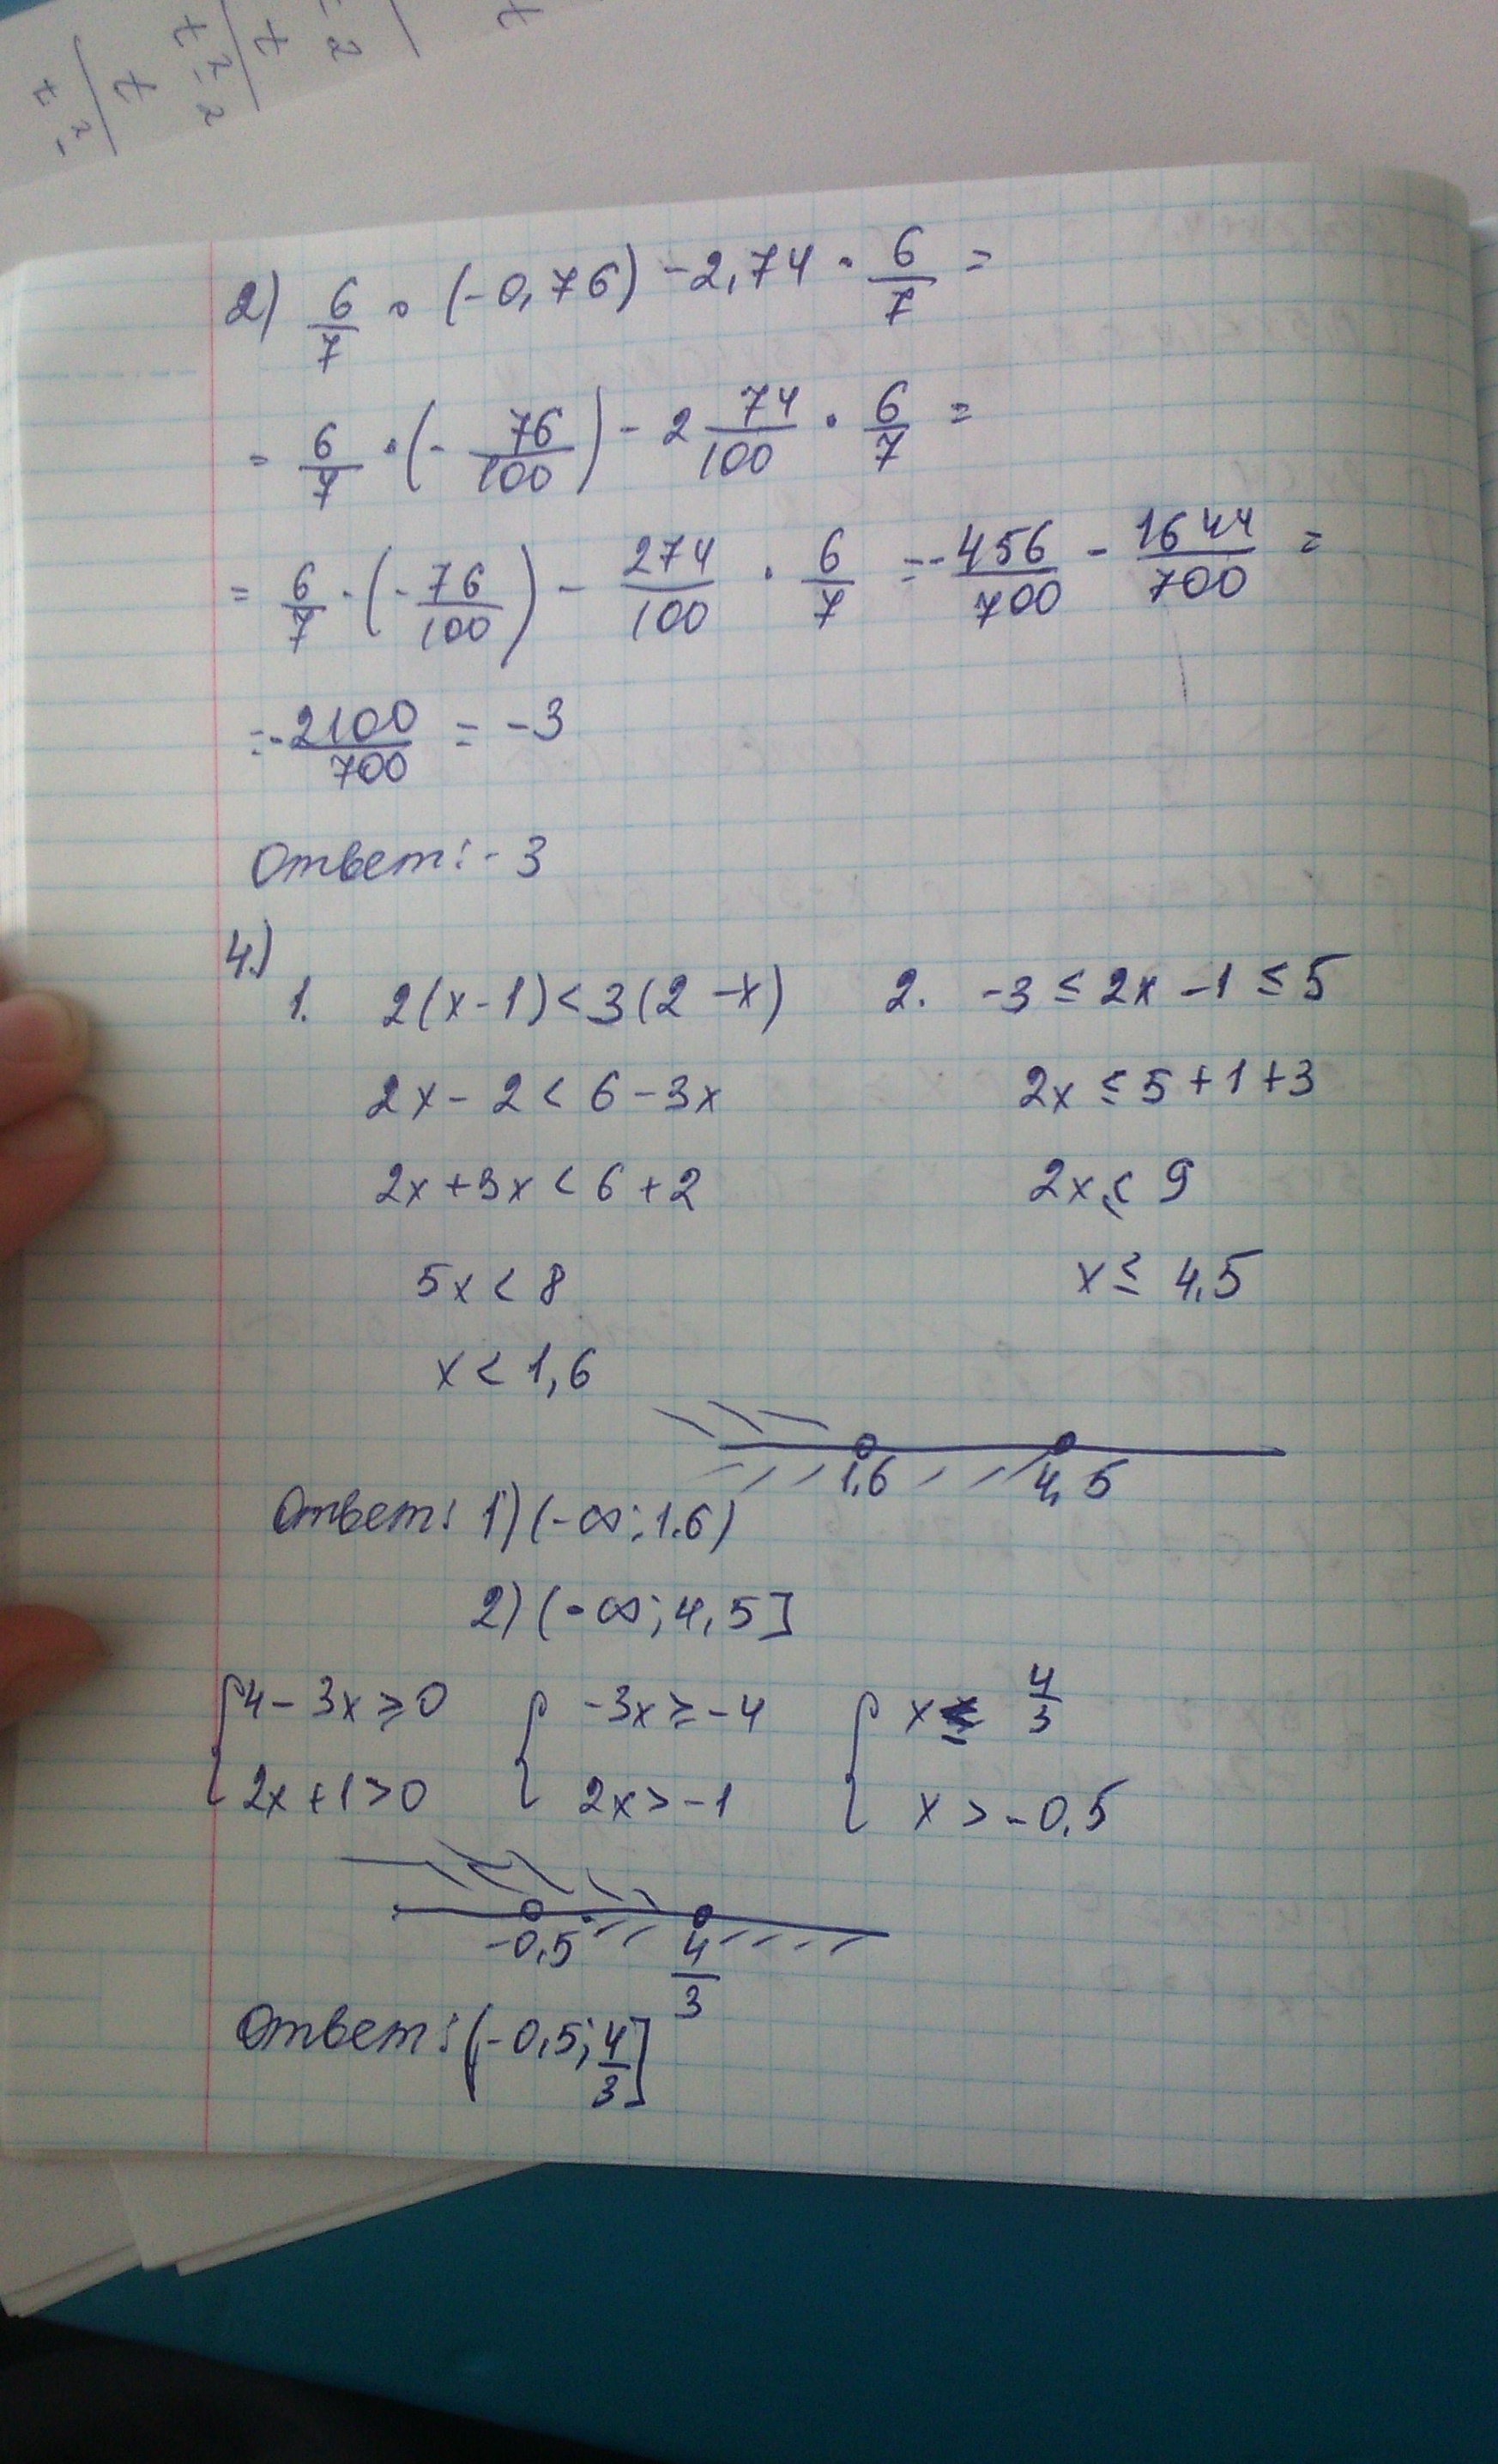 2) 6/7 · (-0,76) - 2,74 · 6/7 =
= 6/7 · (- 76/100) - 2 74/100 · 6/7 =
= 6/7 · (- 76/100) - 274/100 · 6/7 = - 456/700 - 1644/700 =
= - 2100/700 = -3
Ответ: -3
4.)
1. 2(x-1) < 3(2-x)
2x - 2 < 6 - 3x
2x + 3x < 6 + 2
5x < 8
x < 1,6
2. -3 ≤ 2x - 1 ≤ 5
2x ≤ 5 + 1 + 3
2x ≤ 9
x ≤ 4,5
1,6 4,5
Ответ: 1) (-∞; 1.6)
2) (-∞; 4,5]
{ 4 - 3x ≥ 0 { -3x ≥ -4 { x ≤ 4/3
2x + 1 > 0 2x > -1 x > -0,5
-0,5 4/3
Ответ: (-0,5; 4/3]